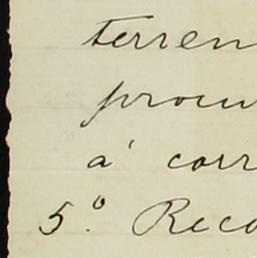 terren
procu
á corr
5º. Reco